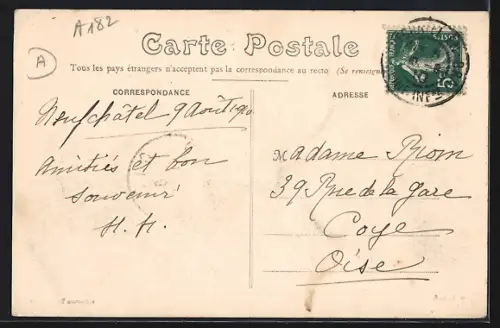 A182
A
Carte Postale
Tous les pays étrangers n'acceptent pas la correspondance au recto (Se renseign
CORRESPONDANCE
ADRESSE
Neufchâtel 9 Août
Amitiés et bon
souvenir
H. H.
Madame Riom
39 Rue de la Gare
Coye
Oise